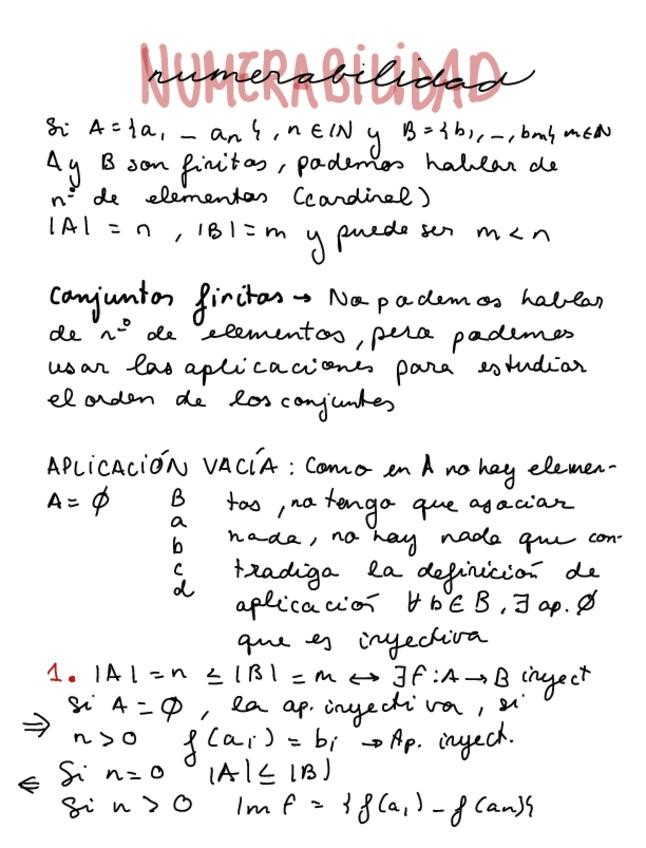 NUMERABILIDAD
numerabilidad
Si A={a₁ _ aₙ}, n∈ℕ y B={b₁, _, bm} m∈ℕ
A y B son finitos, podemos hablar de
nº de elementos (cardinal)
|A| = n , |B| = m y puede ser m < n
Conjuntos finitos → No podemos hablar
de nº de elementos, pero podemos
usar las aplicaciones para estudiar
el orden de los conjuntos
APLICACIÓN VACÍA : Como en A no hay elemen-
A = ∅ B tos, no tengo que asociar
a nada, no hay nada que con-
b tradiga la definición de
c aplicación ∀ b ∈ B, ∃ ap. ∅
d que es inyectiva
1. |A| = n ≤ |B| = m ↔ ∃f : A → B inyect
Si A = ∅ , la ap. inyectiva, si
⇒ n > 0 f(aᵢ) = bᵢ → Ap. inyect.
⇐ Si n = 0 |A| ≤ |B|
Si n > 0 Im f = {f(a₁) _ f(an)}